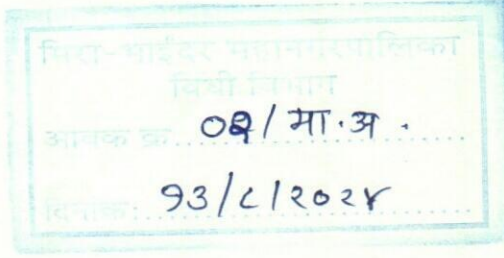 मिरा-भाईंदर महानगरपालिका
विधी विभाग
आवक क्र. ०२/ मा.अ.
दिनांक: १३/८/२०२४